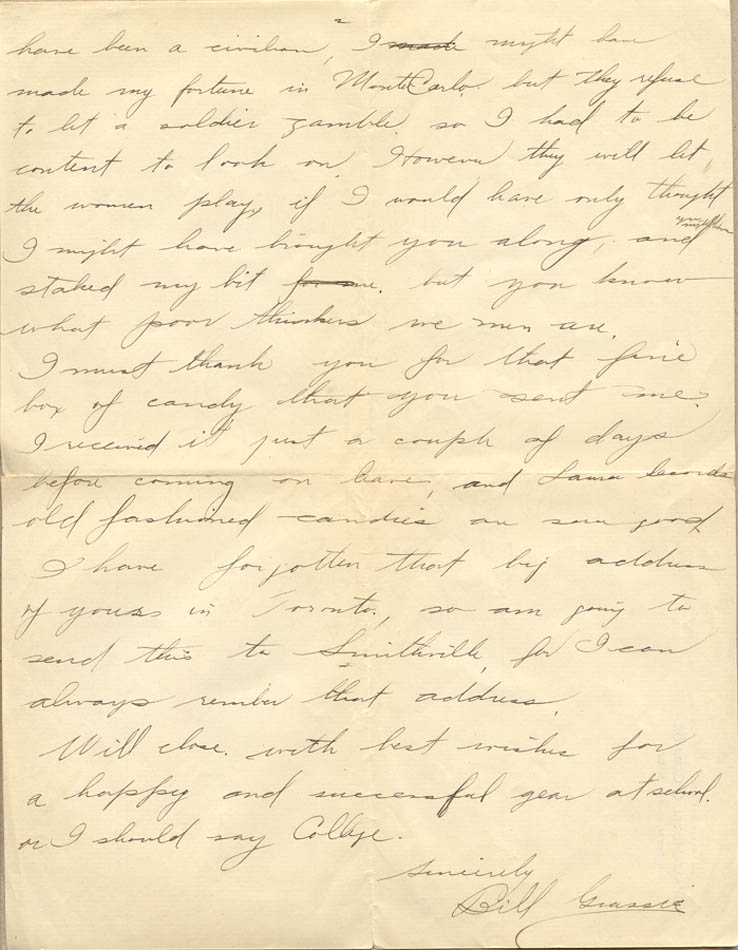 2
have been a civilian, I made might have
made my fortune in Monte Carlo. but they refuse
to let a soldier gamble. so I had to be
content to look on. However they will let
the women play, if I would have only thought
I might have brought you along, and you might have
staked my bit for me. but you know
what poor thinkers we men are.
I must thank you for that fine
box of candy that you sent me.
I received it just a couple of days
before coming on leave, and Laura Secords
old fashioned candies are sure good
I have forgotten that big address
of yours in Toronto, so am going to
send this to Smithville, for I can
always rember that address.
Will close. with best wishes for
a happy and successful year at school.
or I should say College.
Sincerely
Bill Grassie